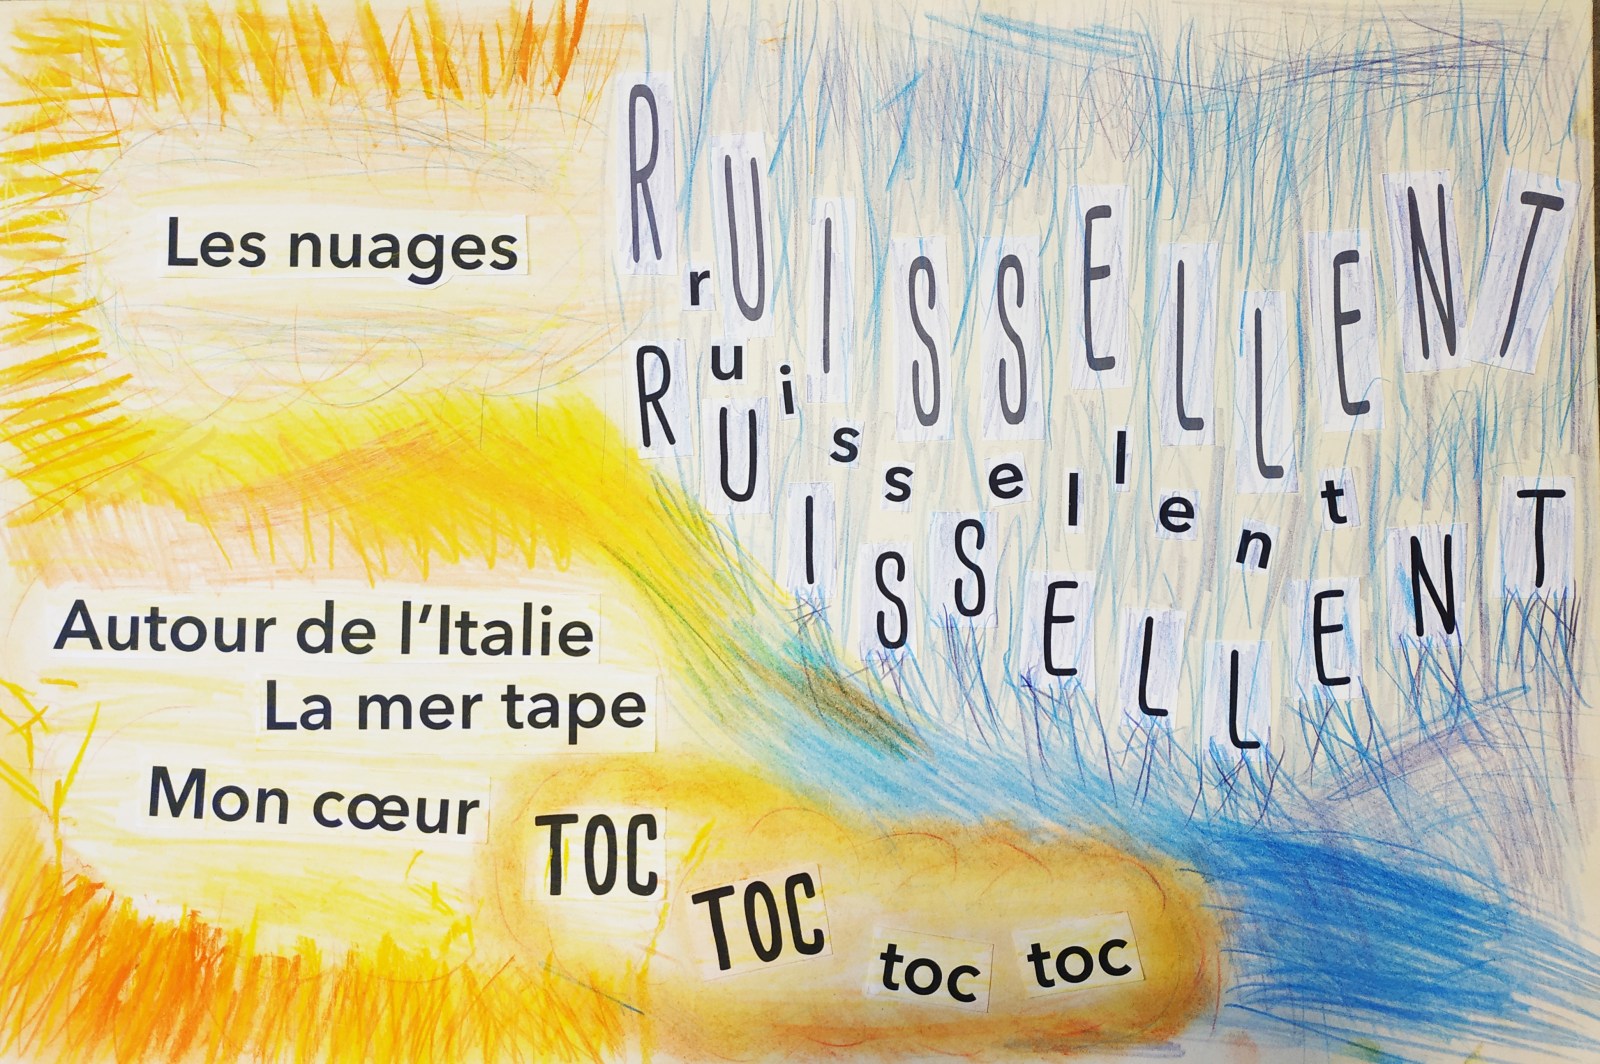 Les nuages
RUISSELLENT
ruissellent
RUISSELLENT
Autour de l'Italie
La mer tape
Mon cœur TOC
TOC toc toc